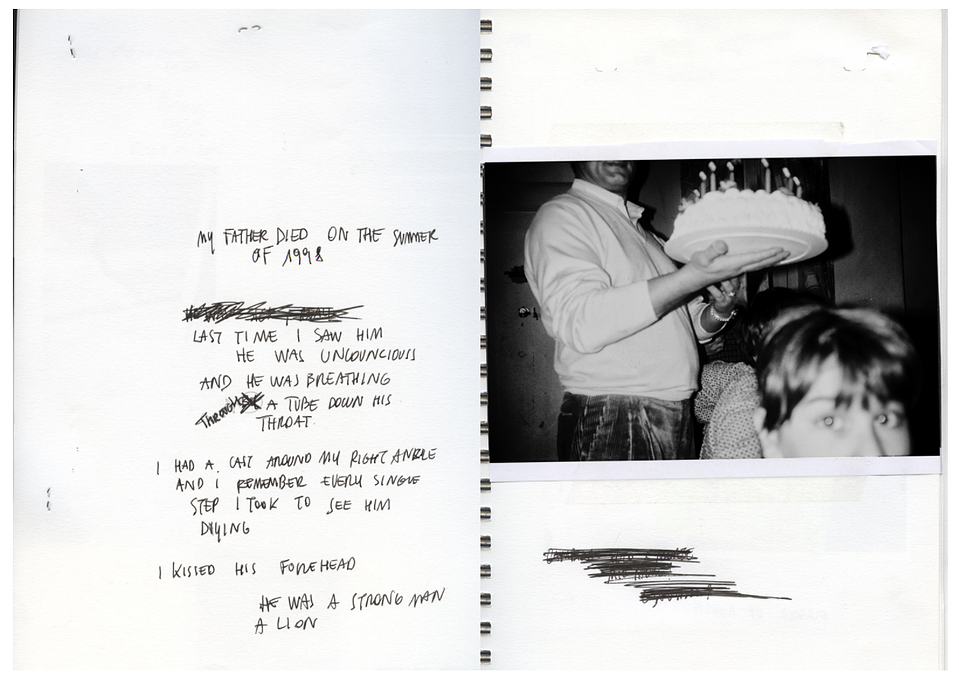 MY FATHER DIED ON THE SUMMER
OF 1998
LAST TIME I SAW HIM
HE WAS UNCOUNCIOUS
AND HE WAS BREATHING
THROUGH A TUBE DOWN HIS
THROAT.
I HAD A CAST AROUND MY RIGHT ANKLE
AND I REMEMBER EVERY SINGLE
STEP I TOOK TO SEE HIM
DYING
I KISSED HIS FOREHEAD
HE WAS A STRONG MAN
A LION